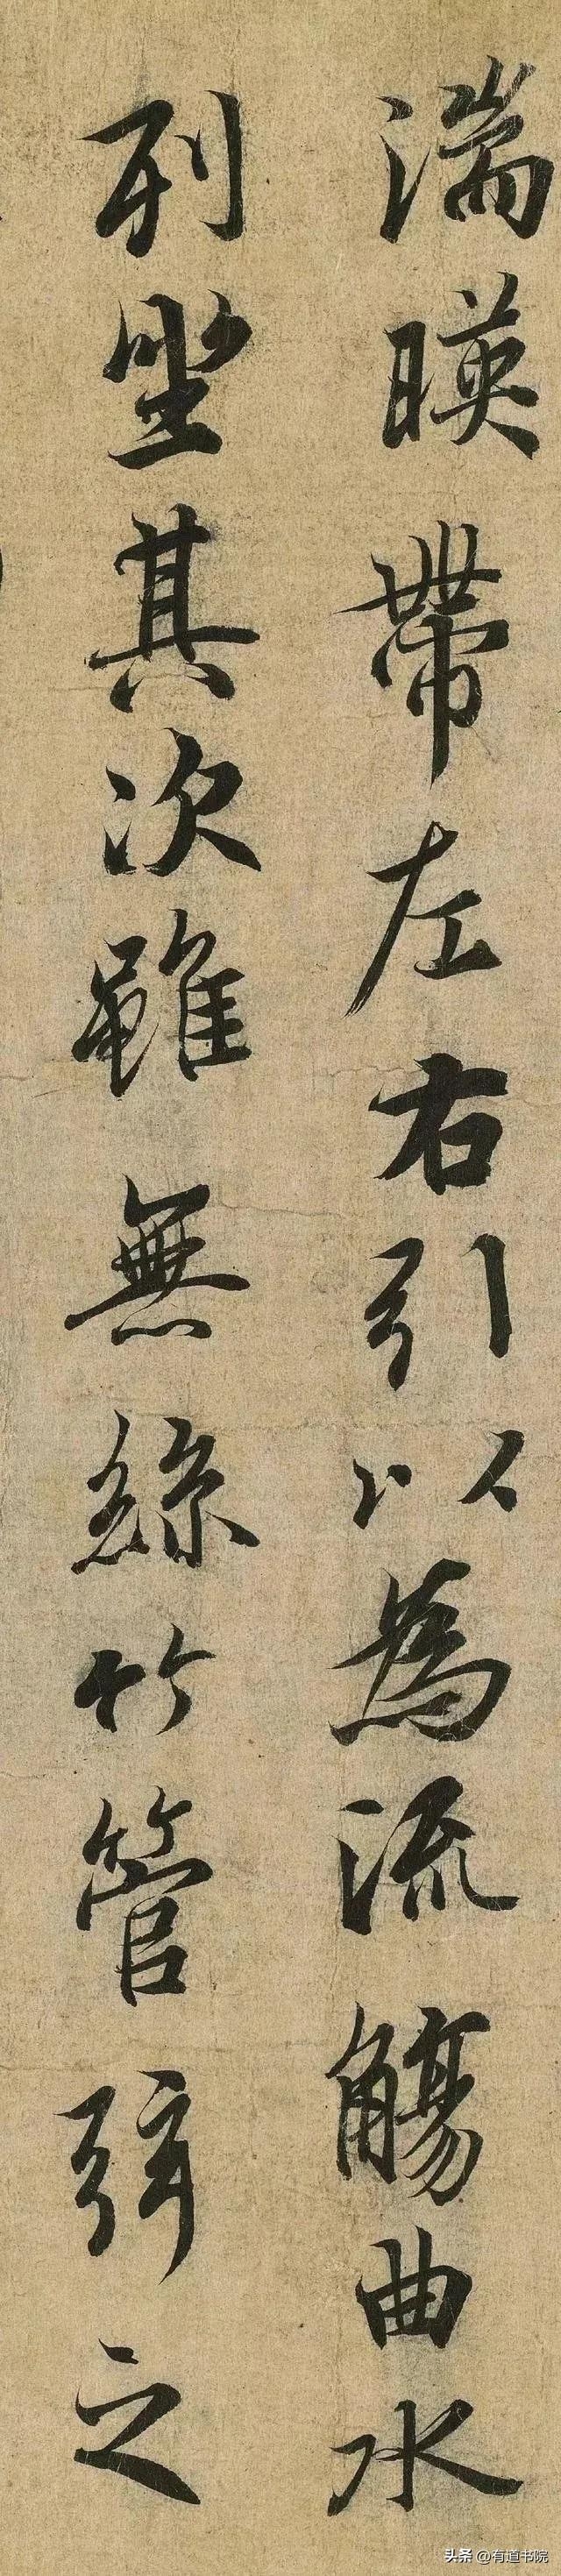 湍暎帶左右引以為流觴曲水
列坐其次雖無絲竹管弦之
头条 @有道书院